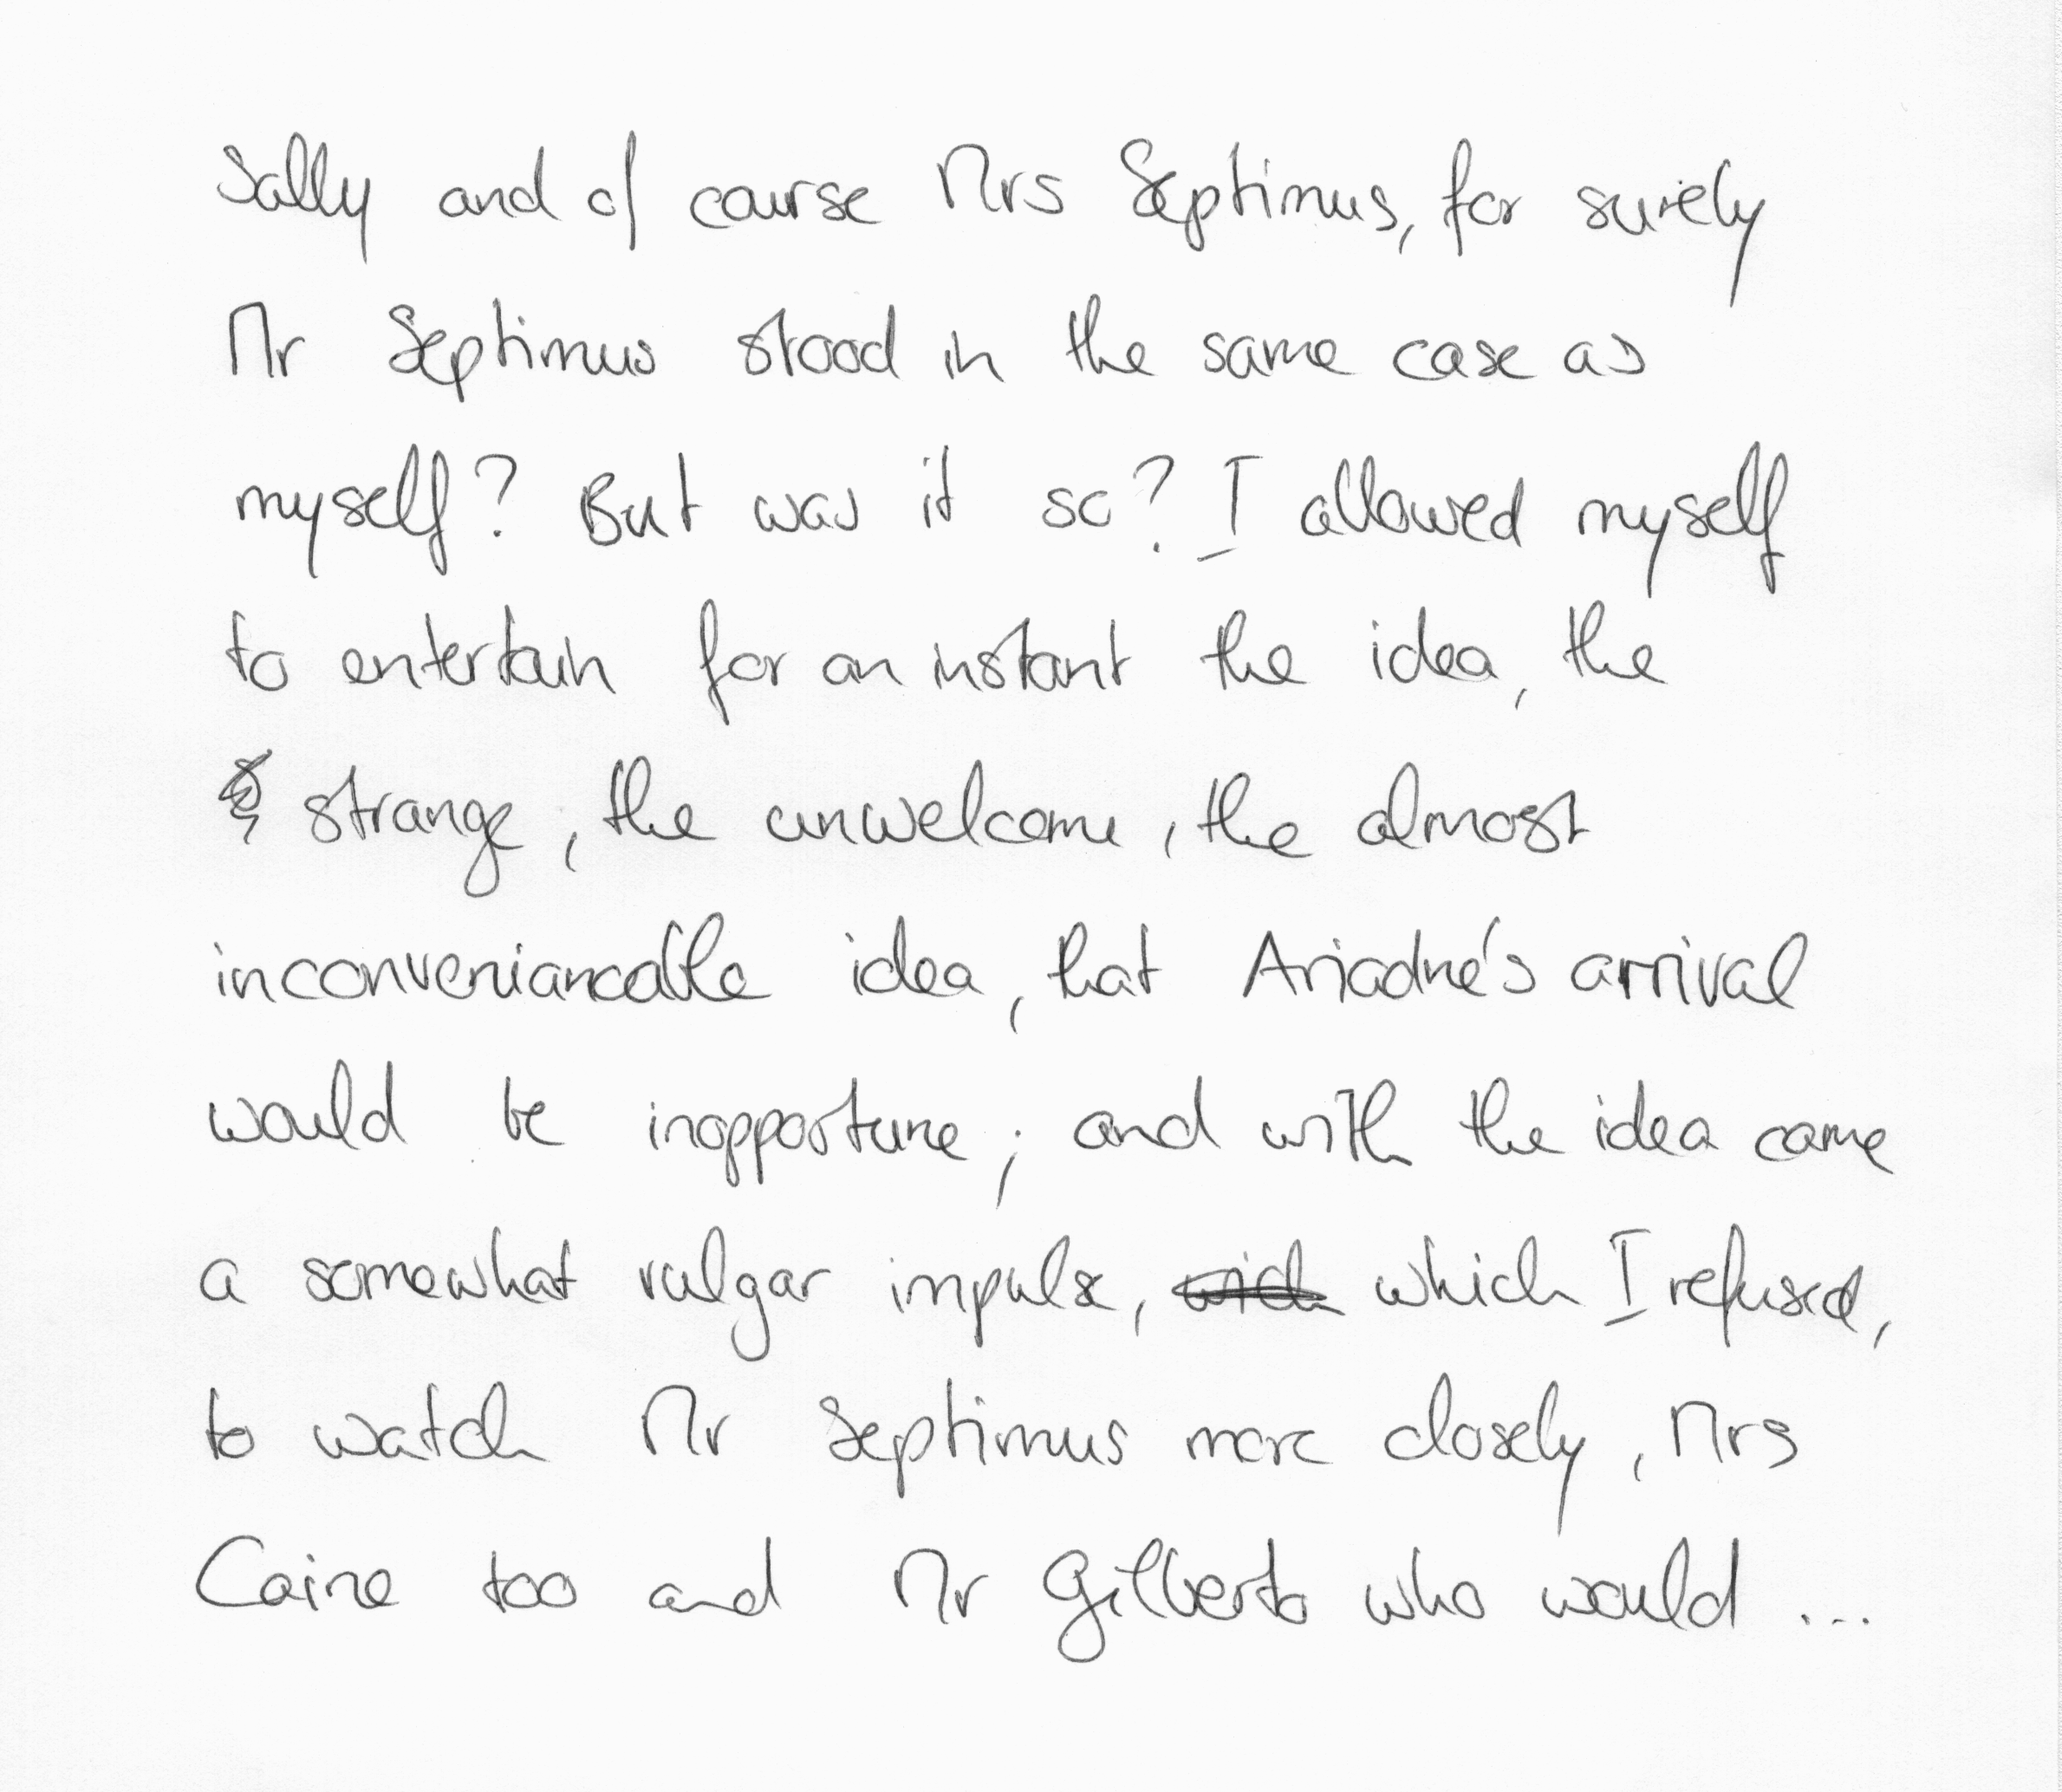 Sally and of course Mrs Septimus, for surely
Mr Septimus stood in the same case as
myself? But was it so? I allowed myself
to entertain for an instant the idea, the
strange, the unwelcome, the almost
inconveniancable idea, that Ariadne's arrival
would be inopportune; and with the idea came
a somewhat vulgar impulse, which I refused,
to watch Mr Septimus more closely, Mrs
Caine too and Mr Gilberto who would ...